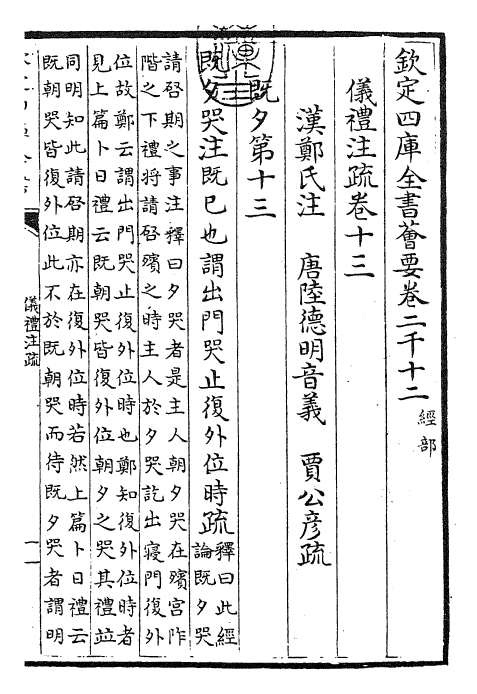 欽定四庫全書薈要卷二千十二 經部
儀禮注疏卷十三
漢鄭氏注 唐陸德明音義 賈公彥疏
既夕第十三
既夕哭注既已也謂出門哭止復外位時疏釋曰此經
論既夕哭
請啓期之事注釋曰夕哭者是主人朝夕哭在殯宮阼
階之下禮將請啓殯之時主人於夕哭訖出寢門復外
位故鄭云謂出門哭止復外位時也鄭知復外位時者
見上篇卜日禮云既朝哭皆復外位朝夕之哭其禮竝
同明知此請啓期亦在復外位時若然上篇卜日禮云
既朝哭皆復外位此不於既朝哭而待既夕哭者謂明
儀禮注疏
一